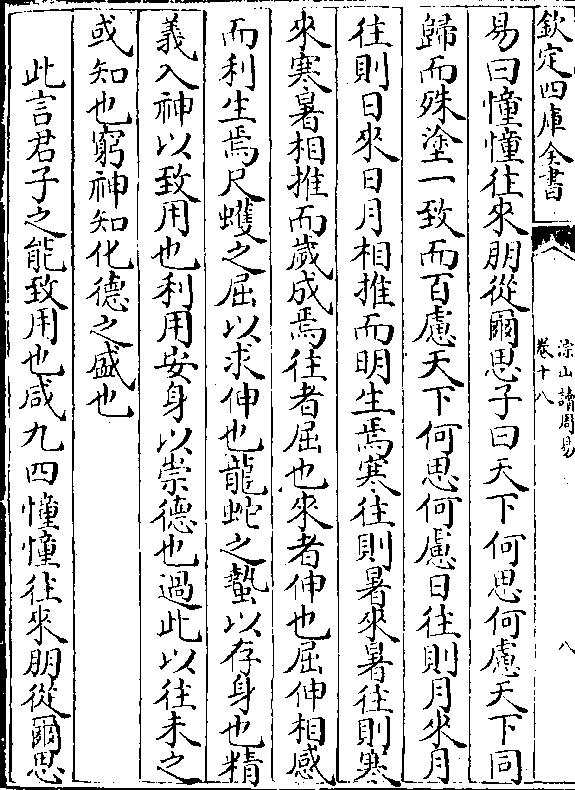 欽定四庫全書
涂山讀周易
卷十八
八
易曰憧憧往來朋從爾思子曰天下何思何慮天下同
歸而殊塗一致而百慮天下何思何慮日往則月來月
往則日來日月相推而明生焉寒往則暑來暑往則寒
來寒暑相推而歲成焉往者屈也來者伸也屈伸相感
而利生焉尺蠖之屈以求伸也龍蛇之蟄以存身也精
義入神以致用也利用安身以崇德也過此以往未之
或知也窮神知化德之盛也
此言君子之能致用也咸九四憧憧往來朋從爾思